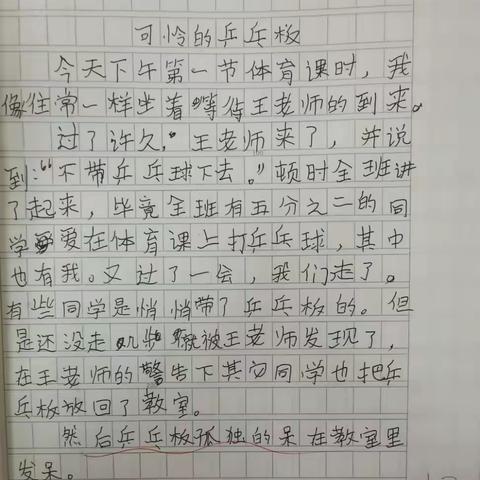 可怜的乒乓板
今天下午第一节体育课时，我
像住常一样坐着等待王老师的到来。
过了许久，王老师来了，并说
到：“不带乒乓球下去。”顿时全班讲
了起来，毕竟全班有五分之二的同
学爱在体育课上打乒乓球，其中
也有我。又过了一会，我们走了。
有些同学是悄悄带了乒乓板的。但
是还没走几步就被王老师发现了，
在王老师的警告下其它同学也把乒
乓板放回了教室。
然后乒乓板孤独的呆在教室里
发呆。